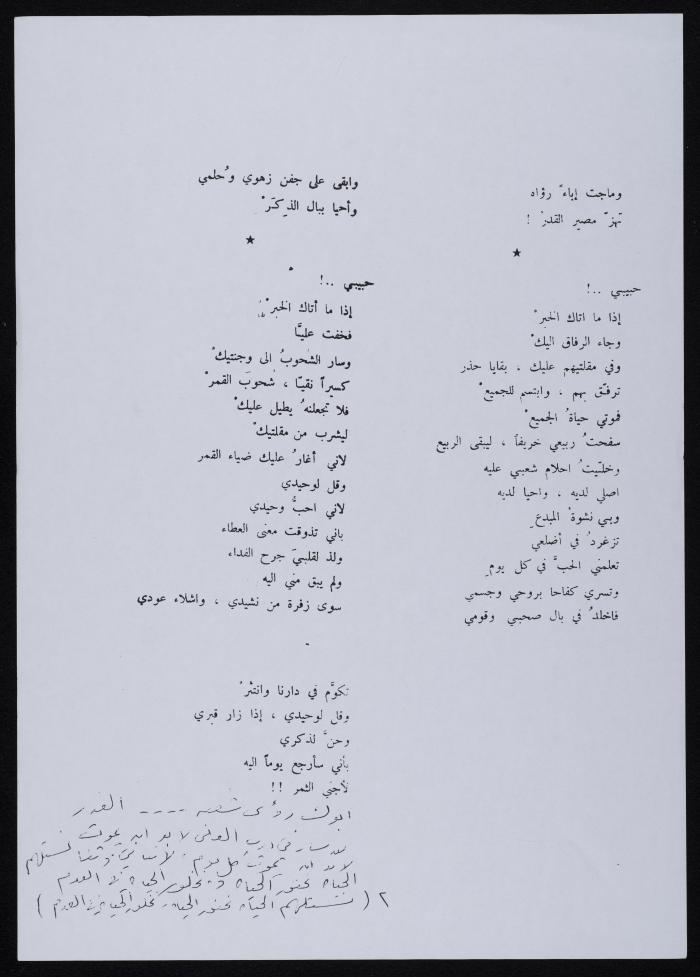 وماجت إباءً رؤاه
تهزّ مصير القدرْ !
★
حبيبي ..!
إذا ما اتاك الخبرْ
وجاء الرفاق اليكْ
وفي مقلتيهم عليك ، بقايا حذر
ترفـّق بهم ، وابتسم للجميعْ
فموتي حياةُ الجميعْ
سفحتُ ربيعي خريفاً ، ليبقى الربيع
وخلـّيتُ احلام شعبي عليه
اصلي لديه ، واحيا لديه
وبي نشوةْ المبدعِ
تزغردُ في أضلعي
تعلمني الحبَّ في كل يومٍ
وتسري كفاحا بروحي وجسمي
فاخلدُ في بال صحبي وقومي
وابقى على جفن زهوي وحُلمي
وأحيا ببال الذِكَرْ
★
حبيبي ..!
إذا ما أتاك الخبرْ
فخفت عليـَّا
وسار الشحوبُ الى وجنتيكْ
كسيراً نقيـّا ، شحوبَ القمرْ
فلا تجعلنهُ يطيل عليكْ
ليشرب من مقلتيكْ
لاني أغارُ عليك ضياء القمر
وقل لوحيدي
لاني احبُّ وحيدي
باني تذوقت معنى العطاء
ولذ لقلبيَ جرح الفداء
ولم يبق مني اليه
سوى زفرة من نشيدي ، واشلاء عودي
تكوَّم في دارنا وانتثرْ
وقل لوحيدي ، إذا زار قبري
وحنَّ لذكري
بأني سأرجع يوماً اليه
لأجني الثمر !!
---- القدر
لا بد ان يموت
لا بد ان يموت كل يوم
الحياة
٢ ( نستلهم الحياة )